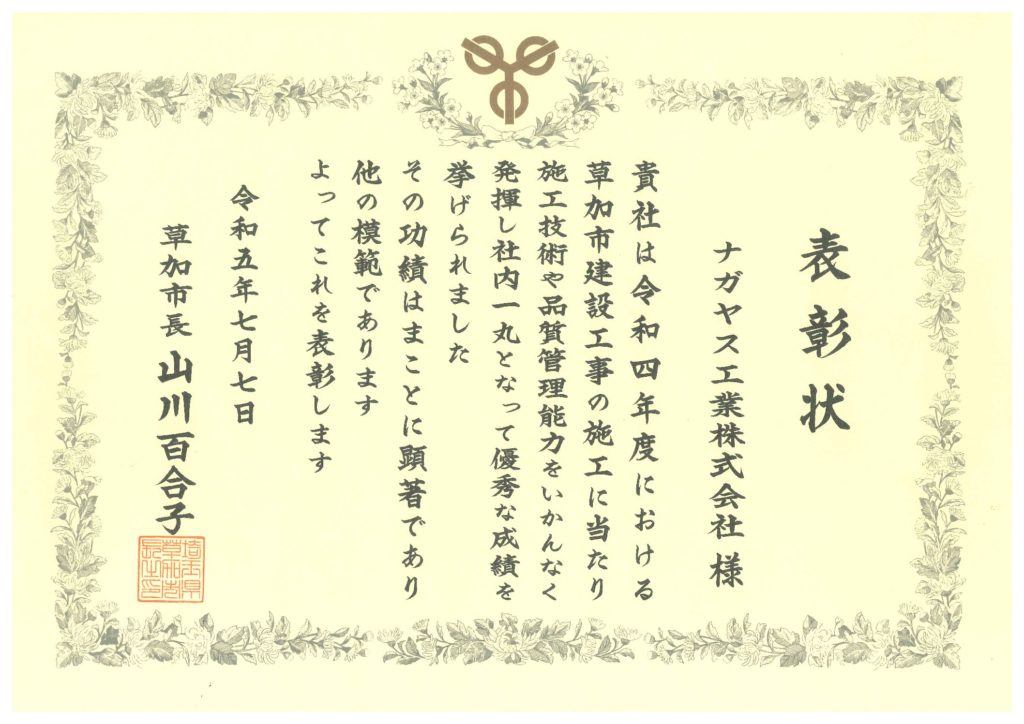 表彰状
ナガヤス工業株式会社 様
貴社は令和四年度における
草加市建設工事の施工に当たり
施工技術や品質管理能力をいかんなく
発揮し社内一丸となって優秀な成績を
挙げられました
その功績はまことに顕著であり
他の模範であります
よってこれを表彰します
令和五年七月七日
草加市長 山川百合子
埼玉県
草加市
長之印